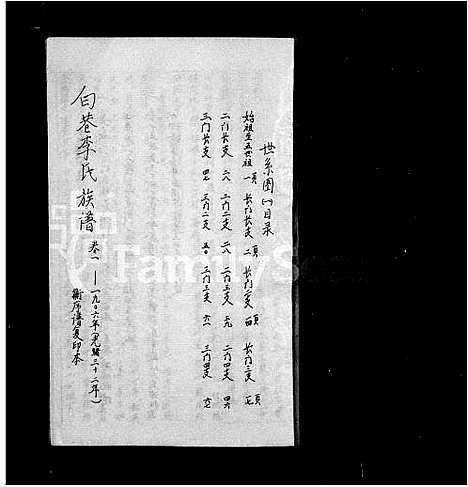 世系图(一)目录
始祖至五世祖 一頁 长门长支 二頁 长门二支 四頁 长门三支 七頁
二门长支 一八 二门二支 二八 二门三支 三九 二门四支 四六
三门长支 四七 三门二支 五〇 三门三支 六一 三门四支 六七
白巷李氏族谱 卷一 — 一九〇六年(光緒三十二年)
衡
谱复印本
FamilySearch